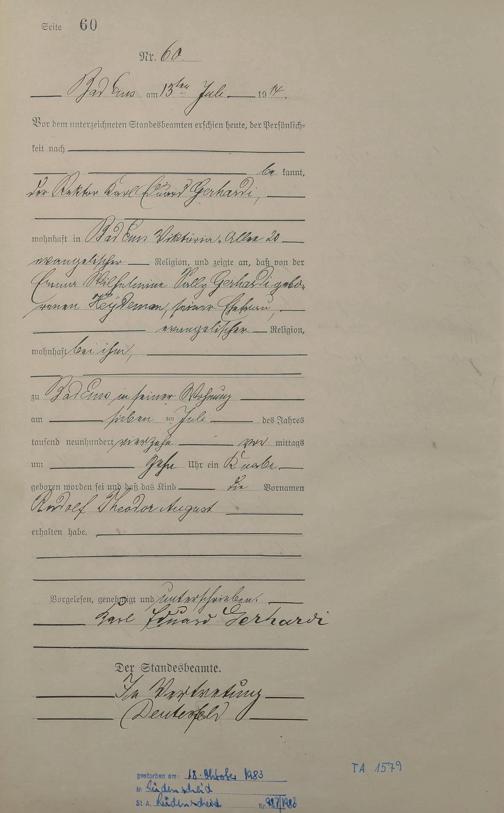 Seite 60
Nr. 60
Bad Ems am 13ten Juli 1914.
Vor dem unterzeichneten Standesbeamten erschien heute, der Persönlich-
keit nach
be kannt,
der Rektor Karl Eduard Gerhardi,
wohnhaft in Bad Ems Viktoria-Allee 20
evangelischer Religion, und zeigte an, daß von der
Emma Wilhelmine Gerhardi gebo-
renen Heydeman, seiner Ehefrau,
evangelischer Religion,
wohnhaft bei ihm,
zu Bad Ems in seiner Wohnung
am sieben ten Juli des Jahres
tausend neunhundert vierzehn vor mittags
um zehn Uhr ein Knabe
geboren worden sei und daß das Kind die Vornamen
Rudolf Theodor August
erhalten habe.
Vorgelesen, genehmigt und unterschrieben.
Karl Eduard Gerhardi
Der Standesbeamte.
In Vertretung
gestorben am: 18. Oktober 1983
in Lüdenscheid
St. A. Lüdenscheid Nr.
TA 1579